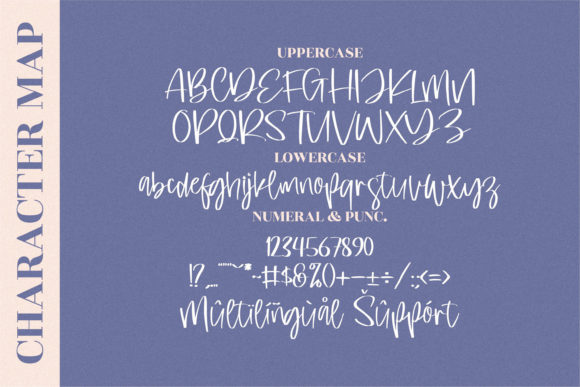 CHARACTER MAP
UPPERCASE
ABCDEFGHIJKLMN
OPQRSTUVWXYZ
LOWERCASE
abcdefghijklmnopqrstuvwxyz
NUMERAL & PUNC.
1234567890
!?,..."“”~*-·#$&%()+−±÷/:;<=>
Mûltïlíñgùål Šûppórt